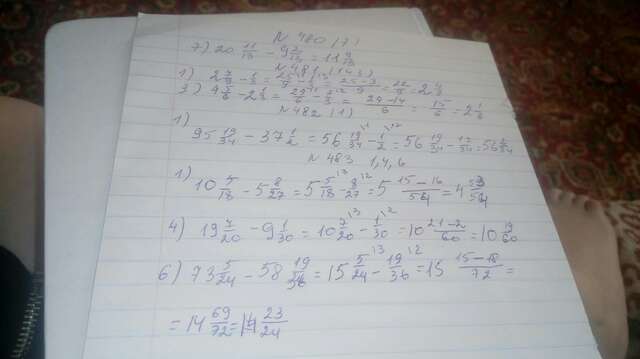 N 480 (7)
7) 20 11/13 - 9 2/13 = 11 9/13
N 481 (1,3)
1) 2 7/9 - 1/3 = 25/9 - 1/3 = 25-3/9 = 22/9 = 2 4/9
3) 4 5/6 - 2 1/3 = 29/6 - 7/3 = 29-14/6 = 15/6 = 2 1/6
N 482 (1)
1)
95 19/34 - 37 1/2 = 56 19/34 - 1/2 = 56 19/34 - 17/34 = 56 2/34
N 483 1,4,6
1) 10 5/18 - 5 8/27 = 5 5/18 - 8/27 = 5 15-16/54 = 4 53/54
4) 19 7/20 - 9 1/30 = 10 7/20 - 1/30 = 10 21-2/60 = 10 19/60
6) 73 5/24 - 58 19/36 = 15 5/24 - 19/36 = 15 15-18/72 =
= 14 69/72 = 14 23/24